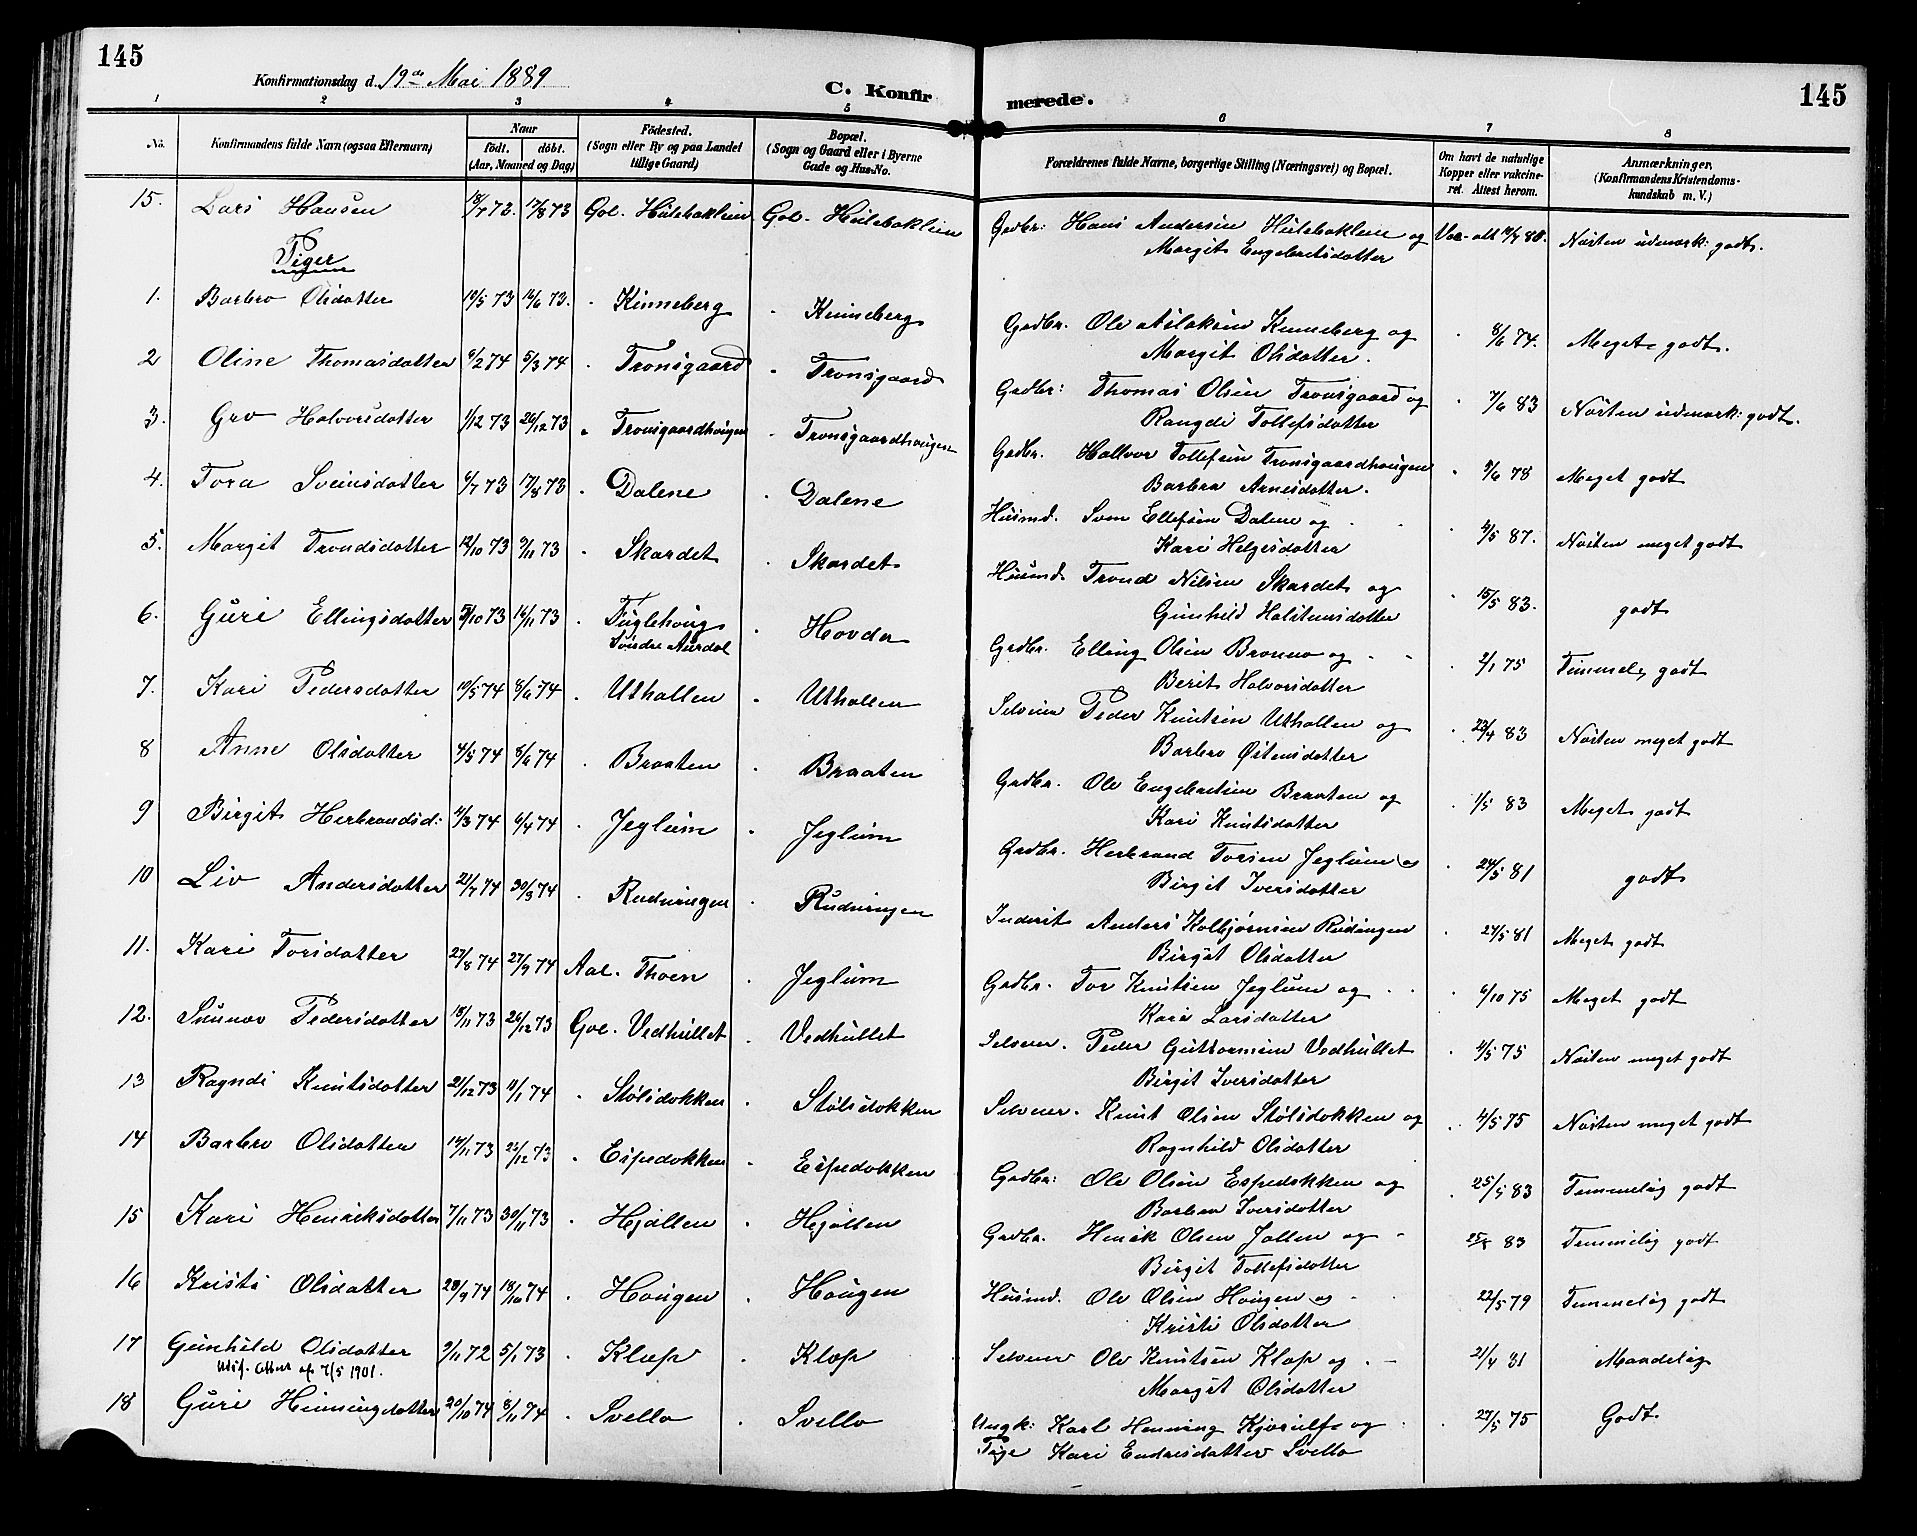 145
145
Konfirmationsdag d. 19de Mai 1889
C. Konfirmerede.
1 2 3 4 5 6 7 8
No. Konfirmandens fulde Navn (ogsaa Efternavn) Naar født. døbt. (Aar, Maaned og Dag) Fødested. (Sogn eller By og paa Landet tillige Gaard) Bopæl. (Sogn og Gaard eller i Byerne Gade og Hus-No. Forældrenes fulde Navne, borgerlige Stilling (Næringsvei) og Bopæl. Om havt de naturlige Kopper eller vakcineret. Attest herom. Anmærkninger, (Konfirmandens Kristendomskundskab m. V.)
15. Lars Hansen 17/8 73 Gol. Huleboklein Gol. Huleboklein Grdbr: Hans Andersen og Nesten udmærk: godt.
Margit Engebretsdatter
Piger
1. Barbro Olsdatter 10/5 73 Kinneberg Kinneberg Grdbr. Ole Aslaksen Kinneberg og 8/6 74. Meget godt.
Margit Olsdatter.
2 Oline Thomasdatter 6/2 74 5/3 74 Tronsgaard Tronsgaard Grdbr: Thomas Olsen Tronsgaard og 7/6 83 Nesten udmærk: godt.
Rangdi Tollefsdatter
3. Gro Halvorsdatter 1/12 73 26/12 73 Tronsgaardhougen Tronsgaardhougen Grdbr. Hallvor Tollefsen Tronsgaardhougen 78 Meget godt
Barbra Arnesdatter.
4. Tora Sveinsdatter 6/7 73 17/8 73 Dalene Dalene Husmd. Sven Ellefsen Dalene og 4/5 87. Nesten meget godt
Kari Helgesdatter
5. Margit Trondsdatter 12/10 73 9/11 73 Skardet Skardet Husmd. Trond Nilsen Skardet og 15/5 83. godt
Gunhild Halstensdatter
6. Guri Ellingsdatter 16/11 73 Fuglehoug Søndre Aurdal Hovda Grdbr. Elling Olsen og 2/1 75 Temmelig godt
Berit Halvorsdatter
7. Kari Pedersdatter 10/5 74 8/6 74 Uthallen Uthallen Selveier Peder Knutsen Uthallen og 23/4 83 Nesten meget godt
Barbro Østensdatter
8 Anne Olsdatter 4/5 74 8/6 74 Braaten Braaten Grdbr. Ole Engebretsen Braaten og 1/5 83 Meget godt
Kari Knutsdatter
9 Birgit Herbrandsd: 11/3 74 6/4 74 Jeglum Jeglum Grdbr. Herbrand Torsen Jeglum og 24/5 81 godt
Birgit Iversdatter
10 Liv Andersdatter 21/7 74 74 Rudningen Rudningen Inderst Anders Kolbjørnsen Rudingen 24/5 81 Meget godt
Birgit Olsdatter
11. Kari Torsdatter 27/8 74 27/9 74 Aal. Thoen Jeglum Grdbr. Tor Knutsen Jeglum og 6/10 75 Meget godt
Kari Larsdatter
12. Sunnov Pedersdatter 18/11 73 26/12 73 Gol. Vedhullet Vedhullet Selveier. Peder Guttormsen Vedhullet 4/5 75 Nesten meget godt
Birgit Iversdatter
13 Ragndi Knutsdatter 21/12 73 11/1 74 Stølsdokken Stølsdokken Selveier. Knut Olsen Stølsdokken og 4/5 75 Nesten meget godt
Ragnhild Olsdatter
14 Barbro Olsdatter 14/11 73 25/12 73 Espedokken Espedokken Grdbr: Ole Olsen Espedokken og 25/5 83 Temmelig godt
Barbra Iversdatter
15 Kari Henriksdatter 7/11 73 30/11 73 Hjallen Hjallen Grdbr. Henrik Olsen Jallen og 83 Temmelig godt
Birgit Tollefsdatter
16 Kristi Olsdatter 28/9 74 18/10 74 Hougen Hougen Husmd. Ole Olsen Hougen og 22/5 79 Temmelig godt
Kristi Olsdatter
17 Gunhild Olsdatter 2/11 72 5/1 73 Kløp Klop Selveier Ole Knutsen Klop og 21/4 81 Maadelig
Uds. Attest af 7/5 1901. Margit Olsdatter
18 Guri Henningsdatter 20/10 74 8/11 74 Svello Svello Ungk: Karl Henning Kjærulf og 27/5 75 Godt.
Pige Kari Endresdatter Svello